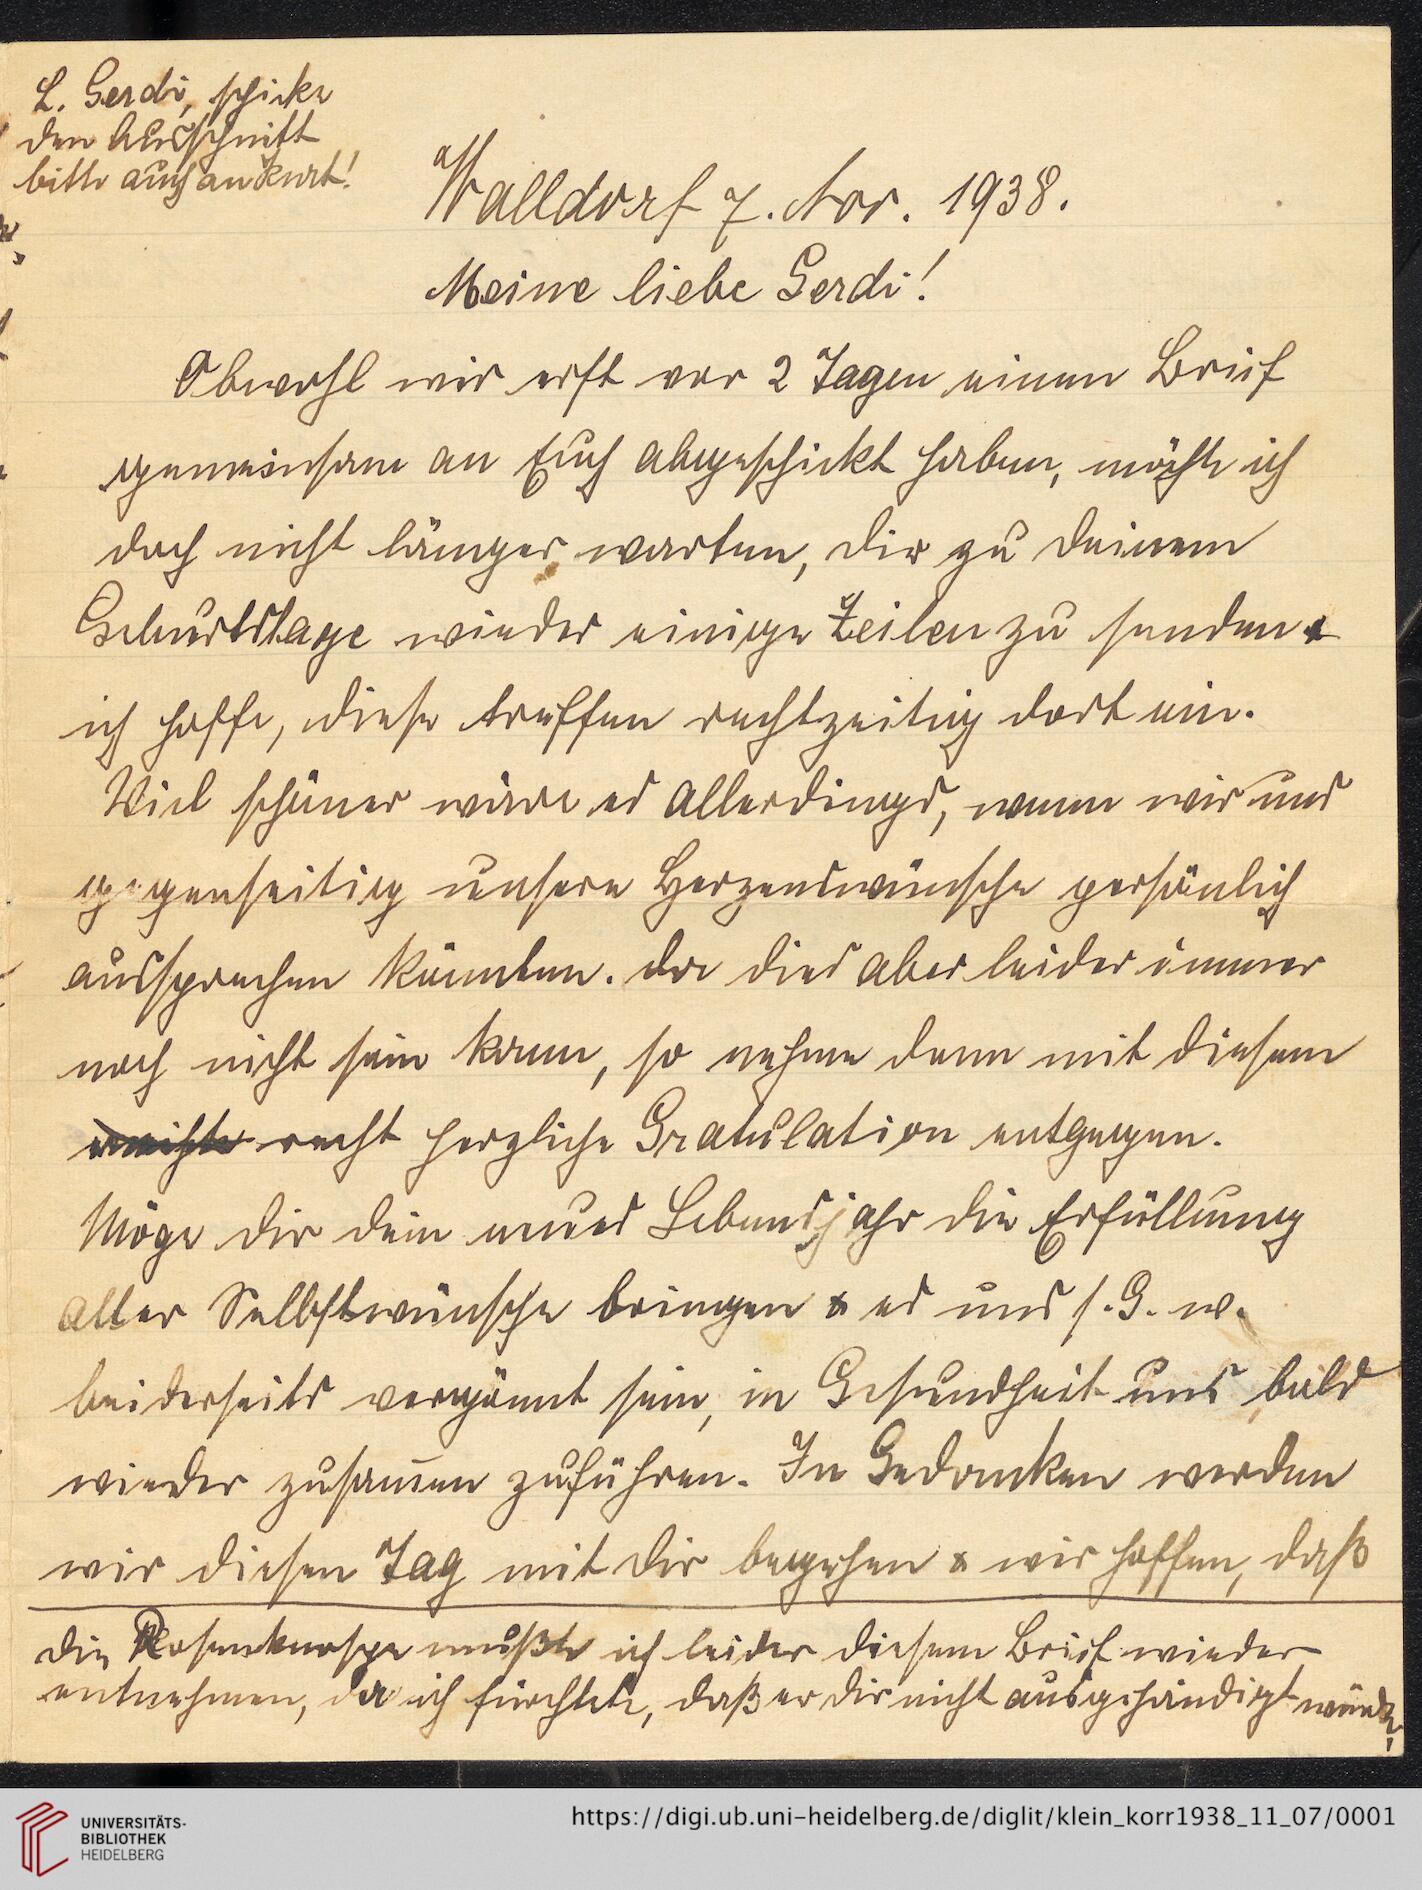 L. Gerdi, schicke
den Ausschnitt
bitte auch an Kurt!
Walldorf 7. Nov. 1938.
Meine liebe Gerdi!
Obwohl wir erst vor 2 Tagen einen Brief
gemeinsam an Euch abgeschickt haben, möchte ich
doch nicht länger warten, dir zu deinem
Geburtstage wieder einige Zeilen zu senden &
ich hoffe, diese treffen rechtzeitig dort ein.
Viel schöner wäre es allerdings, wenn wir uns
gegenseitig unsere Herzenswünsche persönlich
aussprechen könnten. Da dies aber leider immer
noch nicht sein kann, so nehme denn mit diesem
recht herzliche Gratulation entgegen.
Möge dir dein neues Lebensjahr die Erfüllung
aller Selbstwünsche bringen & es uns s. G. w.
beiderseits vergönnt sein, in Gesundheit uns bald
wieder zusamen zuführen. In Gedanken werden
wir diesen Tag mit dir begehen & wir hoffen, daß
die Rosenknospe mußte ich leider diesem Brief wieder
entnehmen, da ich fürchtete, daß er dir nicht ausgehändigt würde,
UNIVERSITÄTS-
BIBLIOTHEK
HEIDELBERG
https://digi.ub.uni-heidelberg.de/diglit/klein_korr1938_11_07/0001